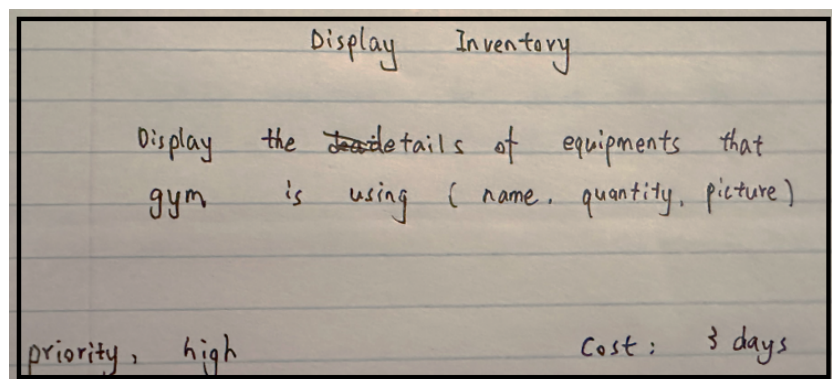 Display Inventory
Display the details of equipments that
gym is using ( name, quantity, picture)
priority, high
Cost: 3 days